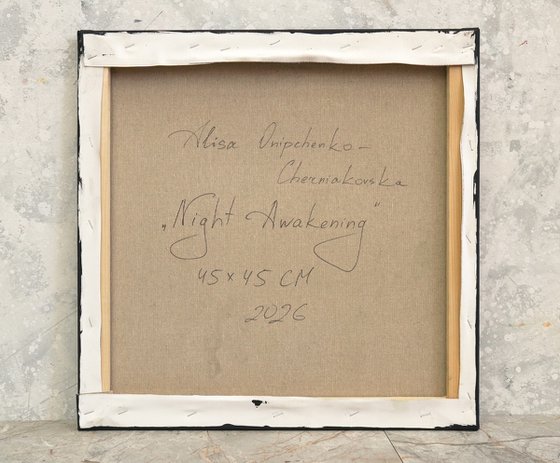 Alisa Onipchenko-
Cherniakovska
„Night Awakening"
45 x 45 CM
2026